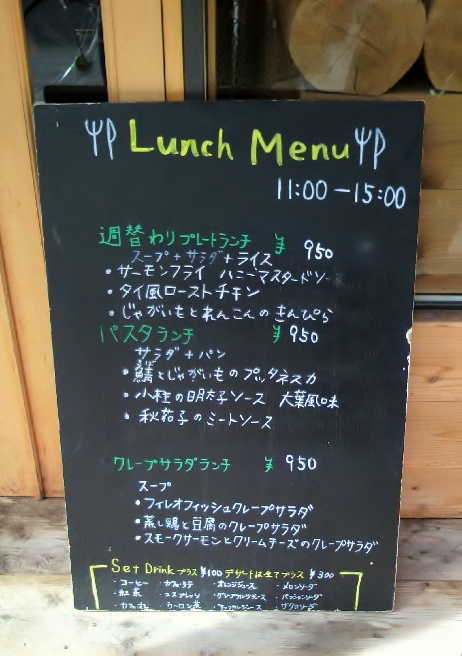 Lunch Menu
11:00-15:00
週替わりプレートランチ ¥950
スープ+サラダ+ライス
・サーモンフライ ハニーマスタードソース
・タイ風ローストチキン
・じゃがいもとれんこんのきんぴら
パスタランチ ¥950
サラダ+パン
・鯖とじゃがいものプッタネスカ
・小柱の明太子ソース 大葉風味
・秋茄子のミートソース
クレープサラダランチ ¥950
スープ
・フィレオフィッシュクレープサラダ
・蒸し鶏と豆腐のクレープサラダ
・スモークサーモンとクリームチーズのクレープサラダ
Set Drink プラス¥100 デザートは全てプラス¥300
・コーヒー ・カフェラテ ・オレンジジュース ・メロンソーダ
・紅茶 ・エスプレッソ ・グレープフルーツジュース ・パッションソーダ
・カフェオレ ・ウーロン茶 ・アップルジュース ・ザクロソーダ